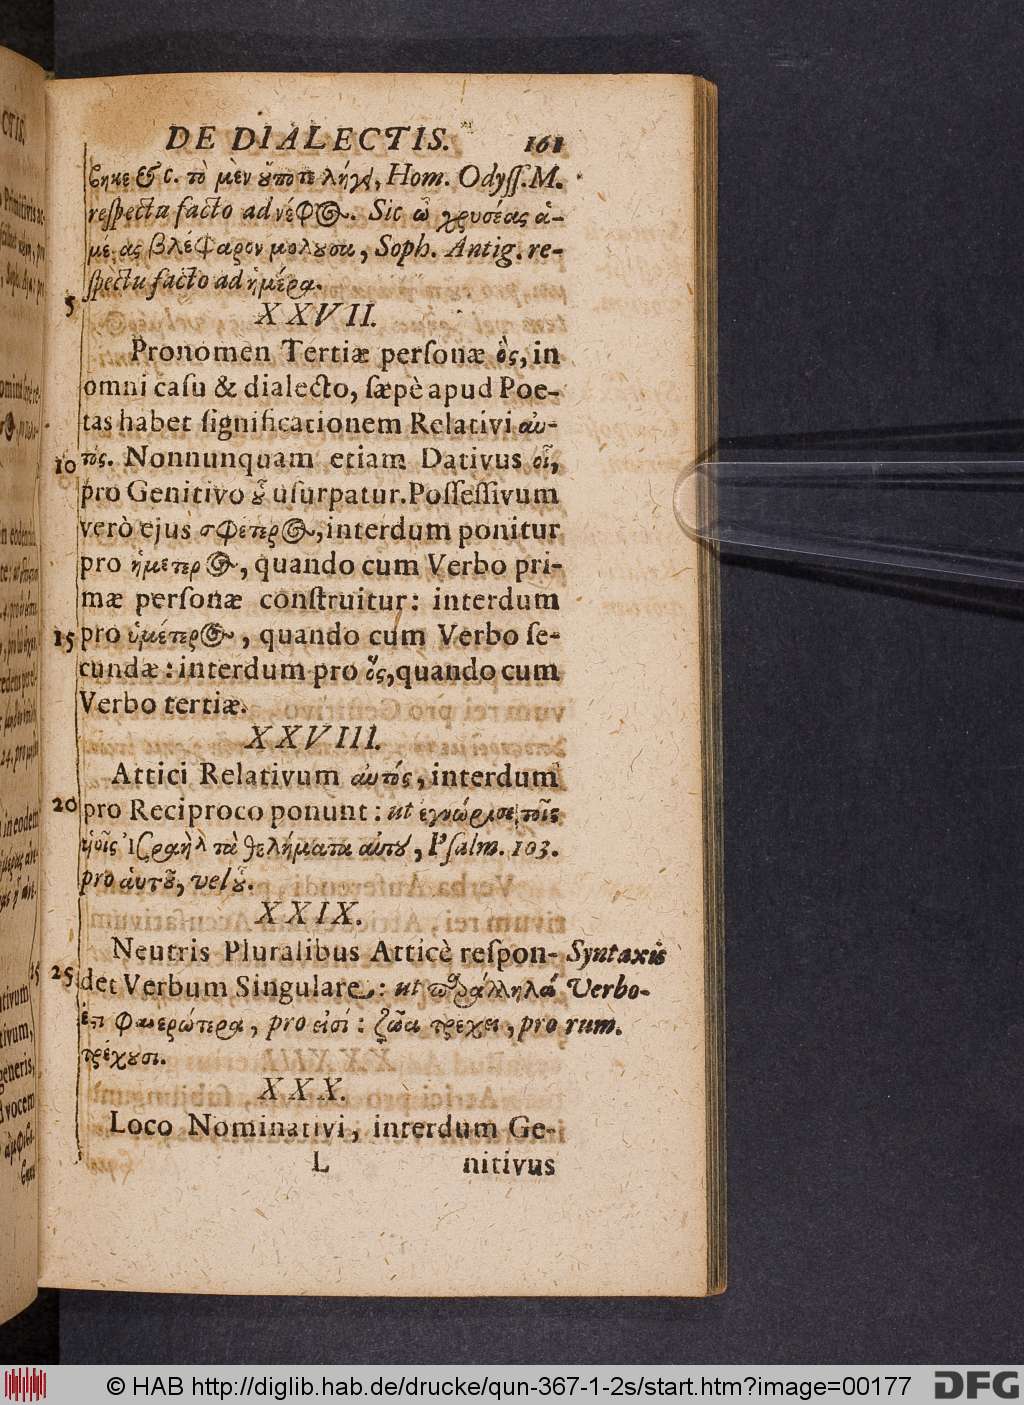 DE DIALECTIS. 161
ϐηκε &c. τὸ μὲν ȣ̓́ποτε λήγ{ει}, Hom. Odyſſ. M.
reſpectu facto ad νέφος. Sic ὦ χρυσέας ἁ-
μέρας βλέφαρον μολȣ͂σα, Soph. Antig. re-
ſpectu facto ad ἡμέρα.
5
XXVII.
Pronomen Tertiæ perſonæ ὃς, in
omni caſu & dialecto, ſæpè apud Poe-
tas habet ſignificationem Relativi αυ-
10 τός. Nonnunquam etiam Dativus οἷ,
pro Genitivo ȣ͗͂ uſurpatur. Poſſeſſivum
verò ejus σφέτερος, interdum ponitur
pro ἡμέτερος, quando cum Verbo pri-
mæ perſonæ conſtruitur: interdum
15 pro ὑμέτερος, quando cum Verbo ſe-
cundæ: interdum pro ὅς, quando cum
Verbo tertiæ.
XXVIII.
Attici Relativum αὐτός, interdum
20 pro Reciproco ponunt: ut ἐγνώρισε τοῖς
ὑοῖς Ἰσραὴλ τὰ θελήματα αὐτȣ͂, Pſalm. 103.
pro ἁυτȣ͂, vel ȣ͗͂.
XXIX.
Neutris Pluralibus Atticè reſpon-
Syntaxis
25 det Verbum Singulare: ut παράλληλά
Verbo-
ἐστι φανερώτερα, pro εἰσί: ζῶα τρέχει, pro
rum.
τρέχȣσι.
XXX.
Loco Nominativi, interdum Ge-
L nitivus
© HAB http://diglib.hab.de/drucke/qun-367-1-2s/start.htm?image=00177
DFG